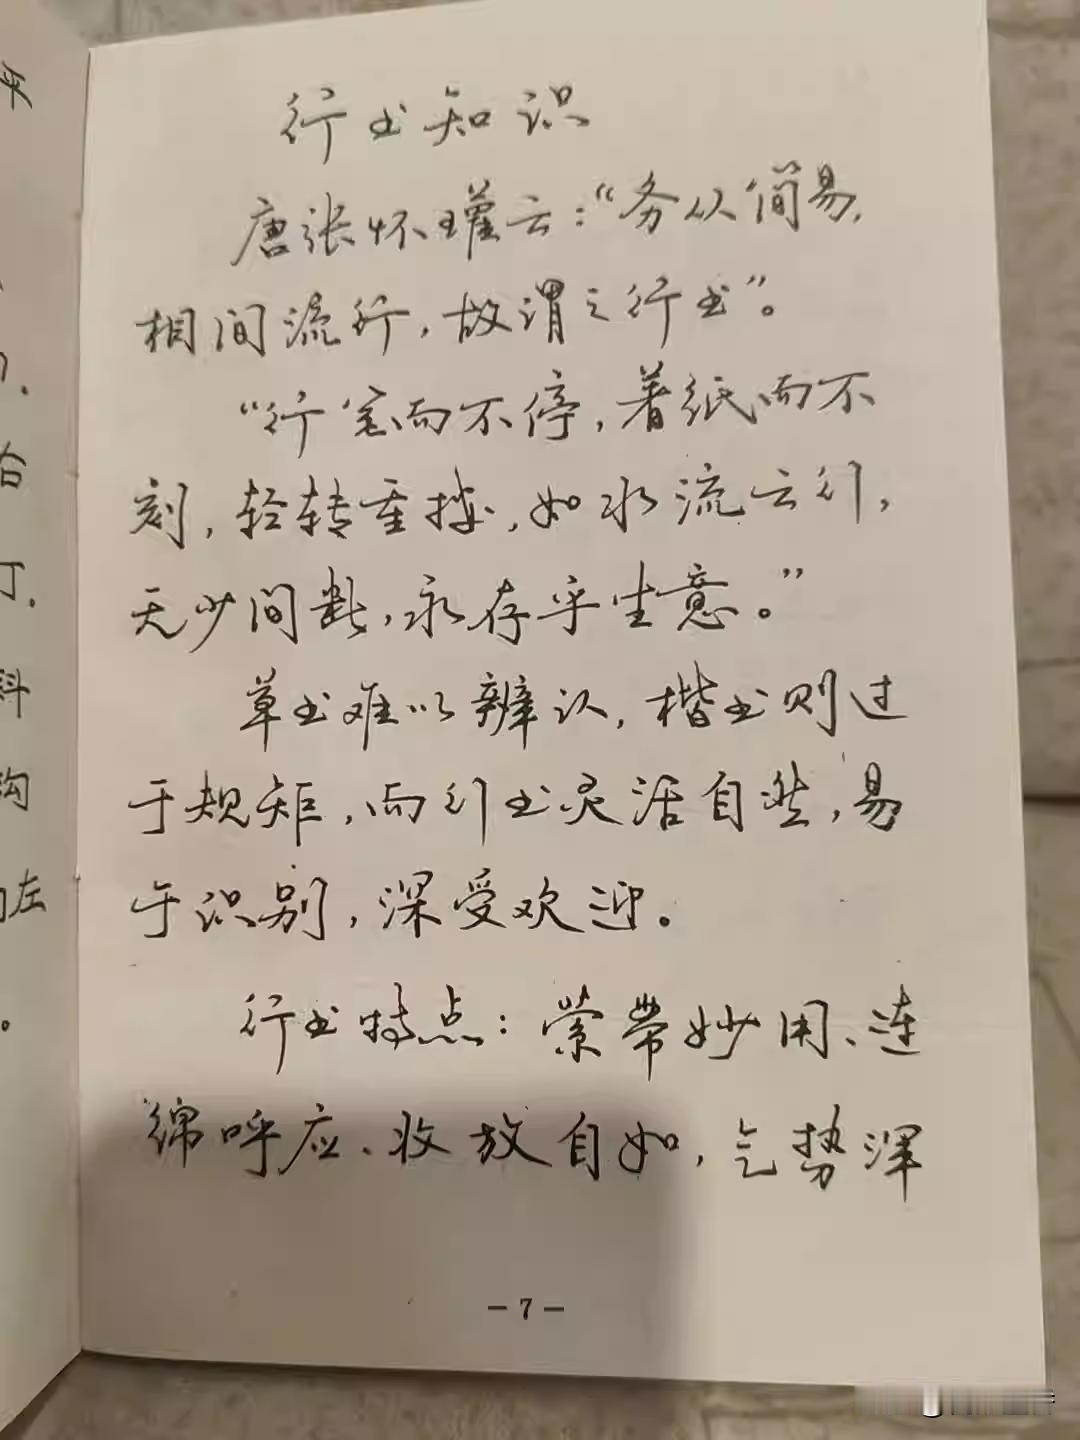 行书知识
唐张怀瓘云：“务从简易，
相间流行，故谓之行书”。
“行笔而不停，着纸而不
刻，轻转重按，如水流云行，
无少间断，永存乎生意。”
草书难以辨认，楷书则过
于规矩，而行书灵活自然，易
于识别，深受欢迎。
行书特点：萦带妙用、连
绵呼应、收放自如，气势浑
－7－